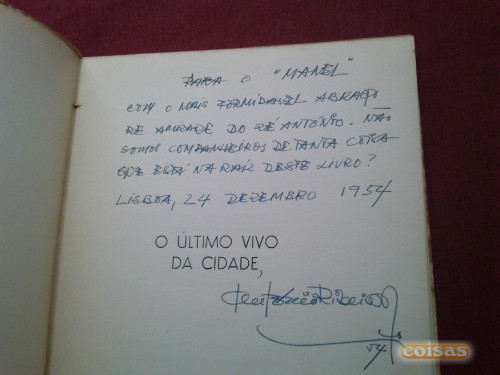 PARA O "MANEL"
COM O MAIS FORMIDAVEL ABRAÇO
DE AMIZADE DO ZÉ ANTÓNIO. NÃO
SOMOS COMPANHEIROS DE TANTA COISA
QUE ESTÁ NA RAÍZ DESTE LIVRO?
LISBOA, 24 DEZEMBRO 1954
O ÚLTIMO VIVO
DA CIDADE,
Ribeiro
54
coisas